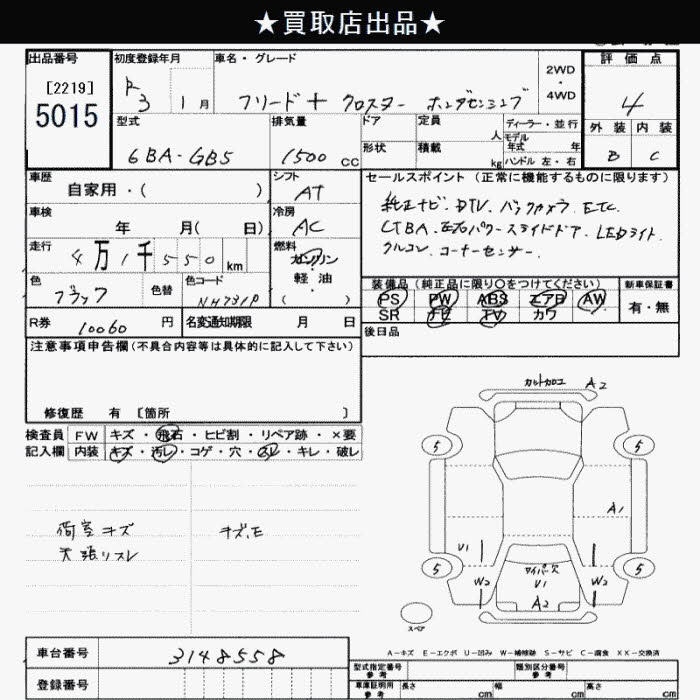 ★買取店出品★
出品番号
[2219]
5015
初度登録年月
R 3 1月
車名・グレード
フリード＋ クロスター ホンダセンシング
2WD
・
4WD
評価点
4
外装 内装
B C
型式
6BA-GB5
排気量
1500 cc
ドア
形状
定員
人
積載
kg
ディーラー・並行
モデル
年式 年
ハンドル 左・右
車歴
自家用・( )
シフト
AT
車検
年 月( 日)
冷房
AC
走行
4万1千550km
燃料
ガソリン
軽・油
( )
色
ブラック
色替
色コード
NH731P
R券
10060 円
名変通知期限 月 日
セールスポイント (正常に機能するものに限ります)
純正ナビ. DTV. バックカメラ. ETC.
CTBA. 左右パワースライドドア. LEDライト.
クルコン. コーナーセンサー.
装備品 (純正品に限り○をつけてください)
PS PW ABS エアB AW
SR TV カワ
新車保証書
有・無
後日品
注意事項申告欄(不具合内容等は具体的に記入して下さい)
修復歴 有 [箇所 ]
検査員
記入欄
FW キズ・飛石・ヒビ割・リペア跡・×要
内装 キズ・汚レ・コゲ・穴・スレ・キレ・破レ
荷室キズ
天張リスレ
キズ.モ
カットカロコ A2
5 5
A1
U1
W2
W2
5 5
ワイパー穴
U1
A2
スペア
A-キズ E-エクボ U-凹み W-補修跡 S-サビ C-腐食 XX-交換済
車台番号
3148558
登録番号
型式指定番号
参考
類別区分番号
参考
車庫証明用
参考
長さ cm
幅 cm
高さ cm